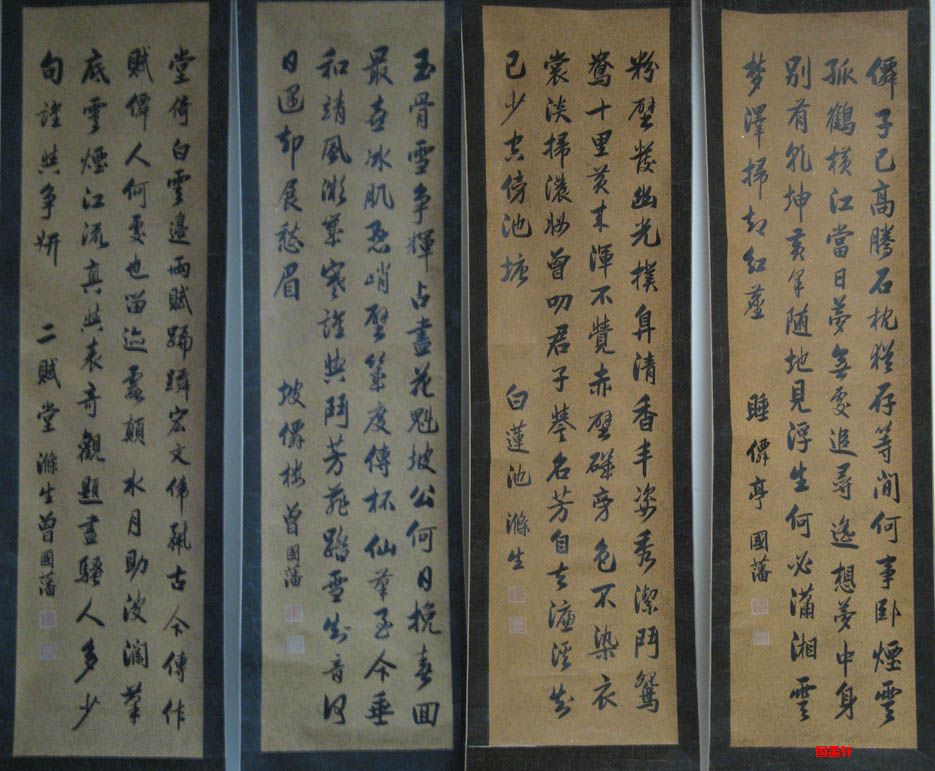 僊子已高騰石枕猶存等閒何事臥煙雲
孤鶴橫江當日夢無處追尋遙想夢中身
別有乾坤随地見浮生何必瀟湘雲
夢澤掃却紅塵 睡僊亭 國藩
粉壁發幽光撲鼻清香丰姿秀潔鬥鴛
鴦十里芙來渾不覺赤壁磯旁 色不染衣
裳淡掃濃妝曾叨君子譽名芳自去濂溪知
已少空傍池塘 白蓮池 滌生
玉骨雪争輝占盡花魁坡公何日挽春回
最喜冰肌懸峭壁度傳杯 仙萼至今垂
和靖風漸寒誰與鬥芳菲踏雪知音何
日遇却展愁眉 坡僊梅 曾國藩
堂倚白雲邊兩賦宏文偉製古今傳作
賦僊人何處也留迹雲顛 水月助波瀾筆
底雲煙江流真與表奇觀題盡騷人多少
句誰與争妍 二賦堂 滌生曾國藩